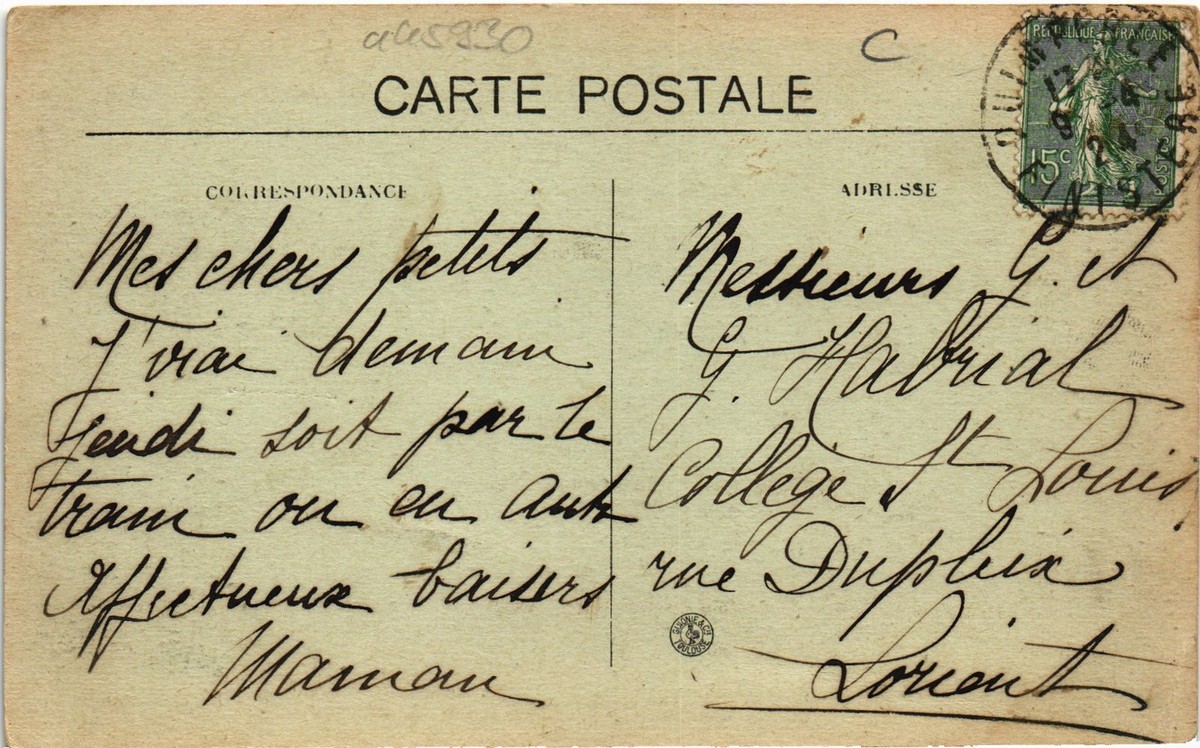 a45930
C
CARTE POSTALE
RÉPUBLIQUE FRANÇAISE
15c
POSTES
17
9 -4
24
FINISTERE
CORRESPONDANCE
Mes chers petits
J'irai demain
Jeudi soit par le
train ou en auto
Affectueux baisers
Maman
ADRESSE
Messieurs G. et
G. Habrial
Collège St Louis
rue Dupleix
Lorient
TOULOUSE